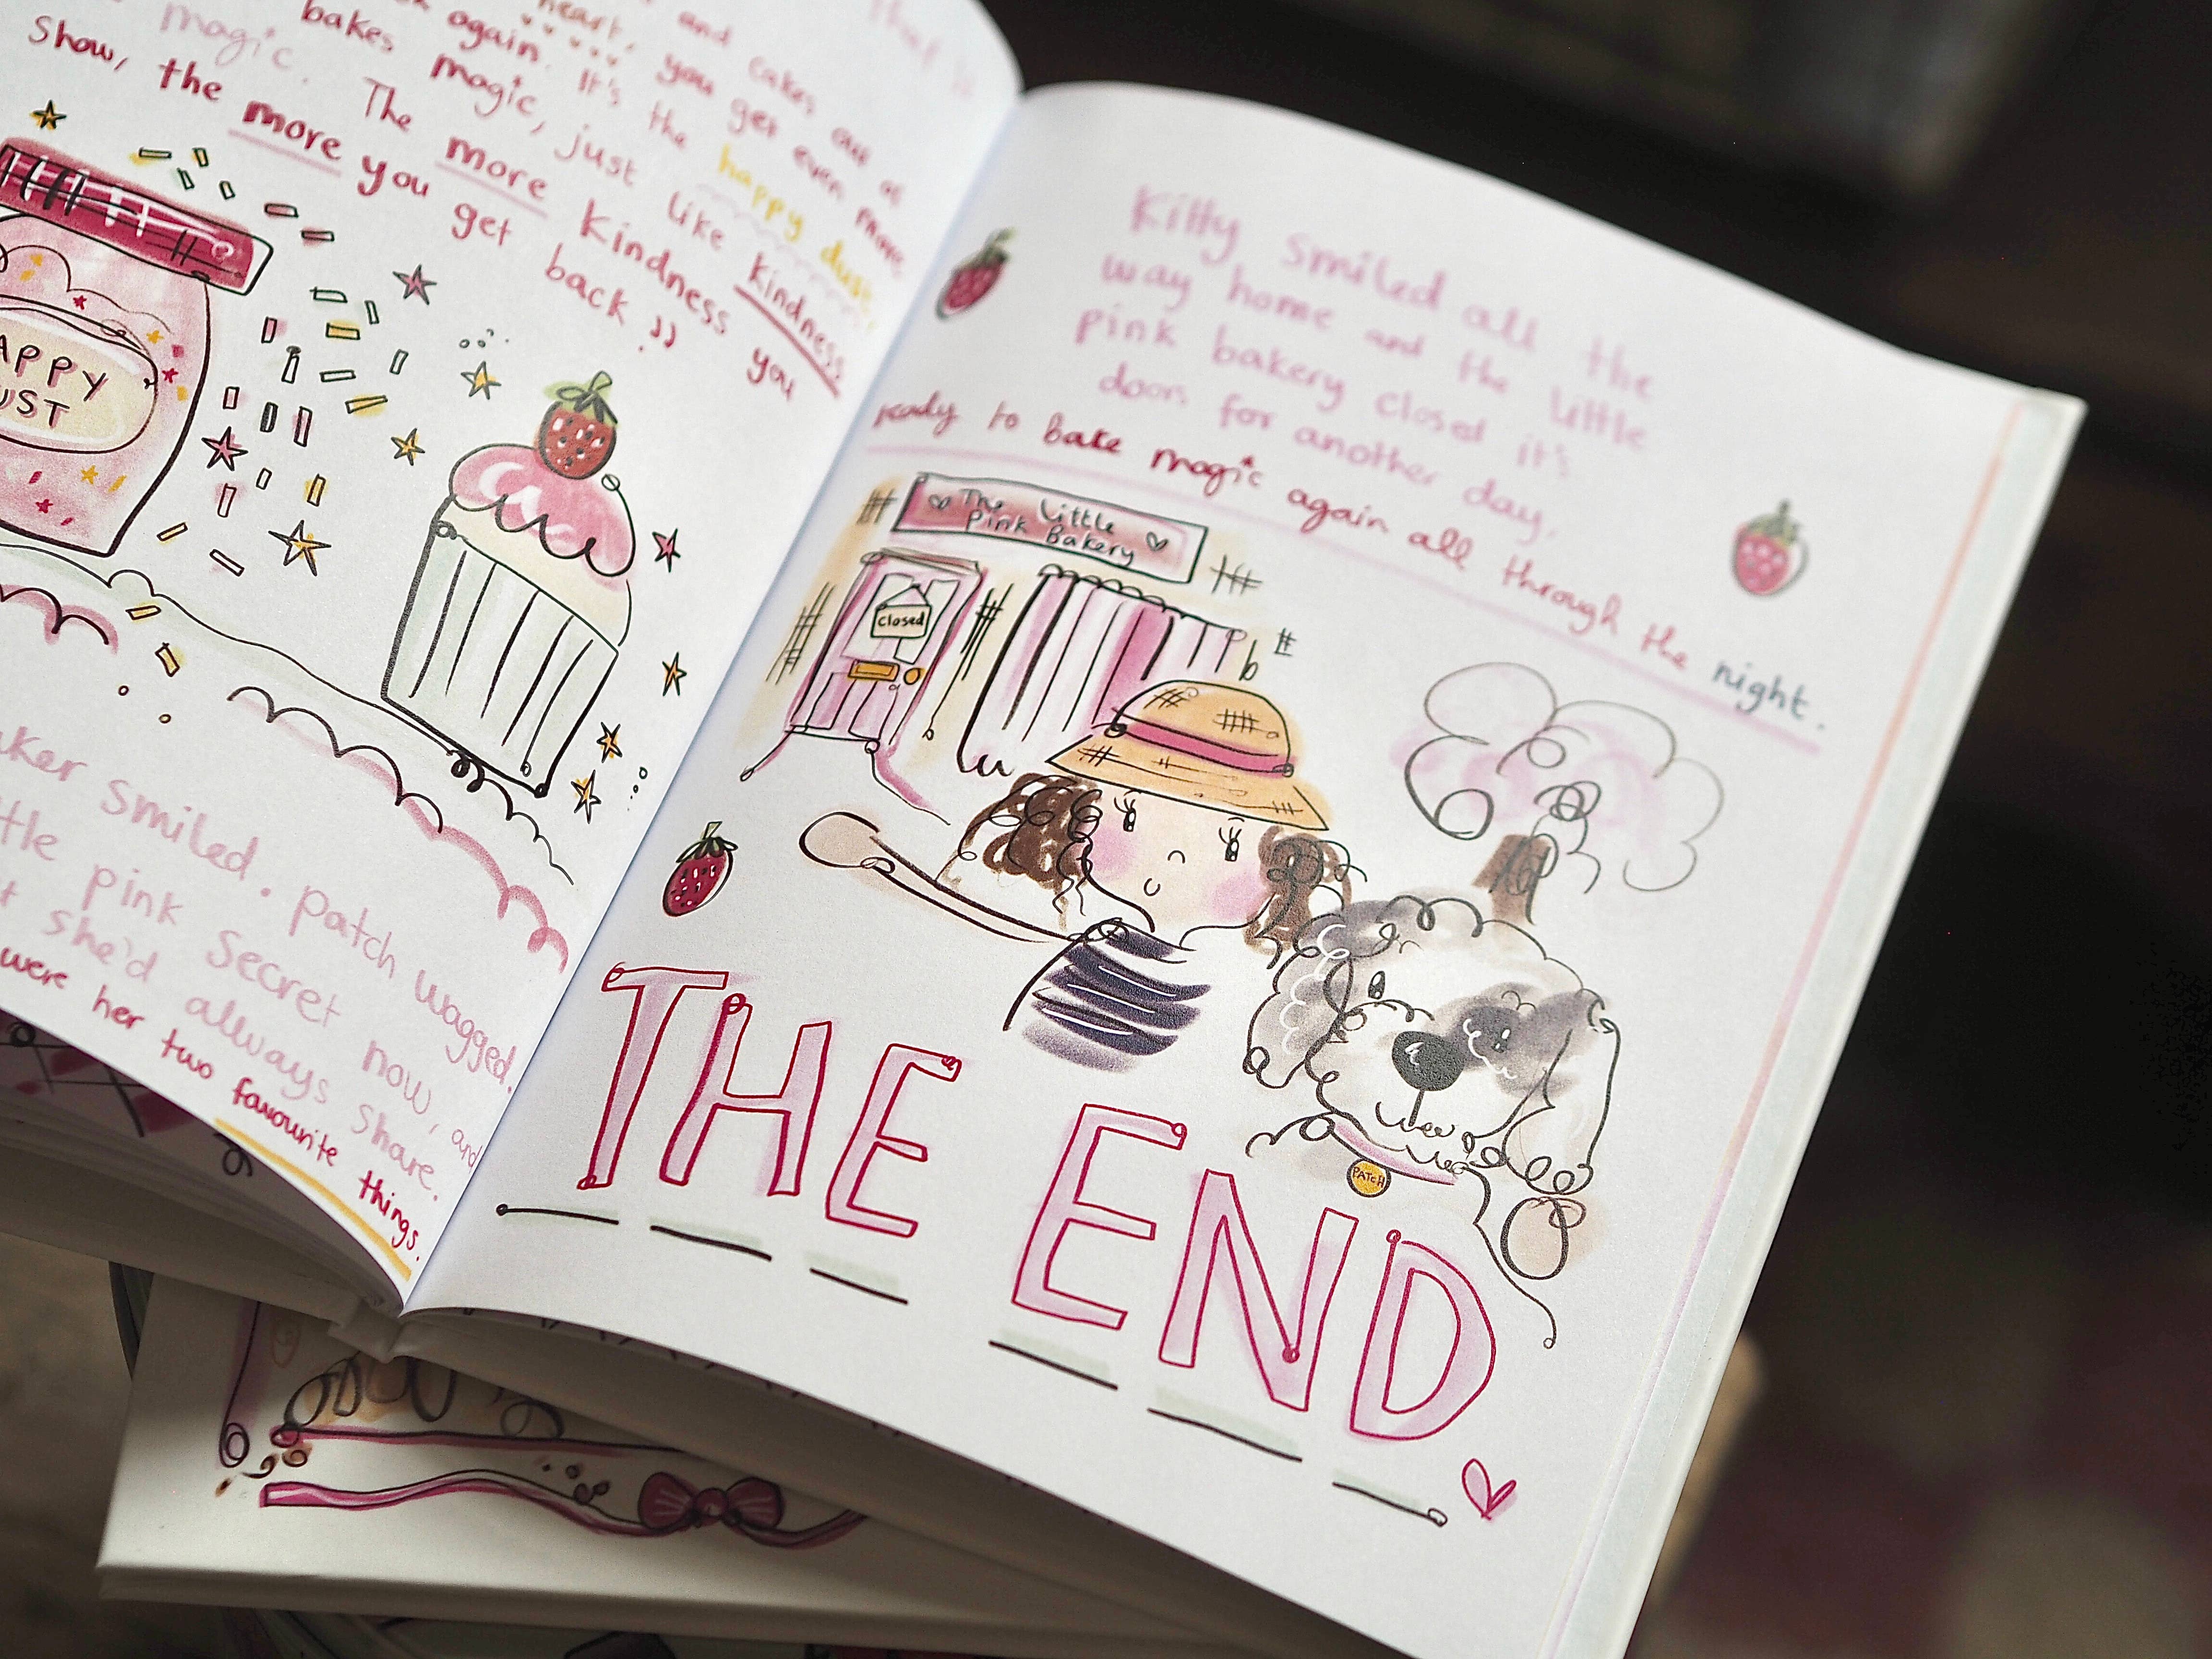 and cakes out of
heart, you get even more
again. It's the happy dust,
bakes magic, just like kindness
magic. The more kindness you
show, the more you get back."
APPY
UST
ker smiled. Patch wagged.
ttle pink secret now, and
she'd allways share.
were her two favourite things.
Kitty smiled all the
way home and the little
pink bakery closed it's
doors for another day,
ready to bake magic again all through the night.
The Little
Pink Bakery
closed
PATCH
THE END